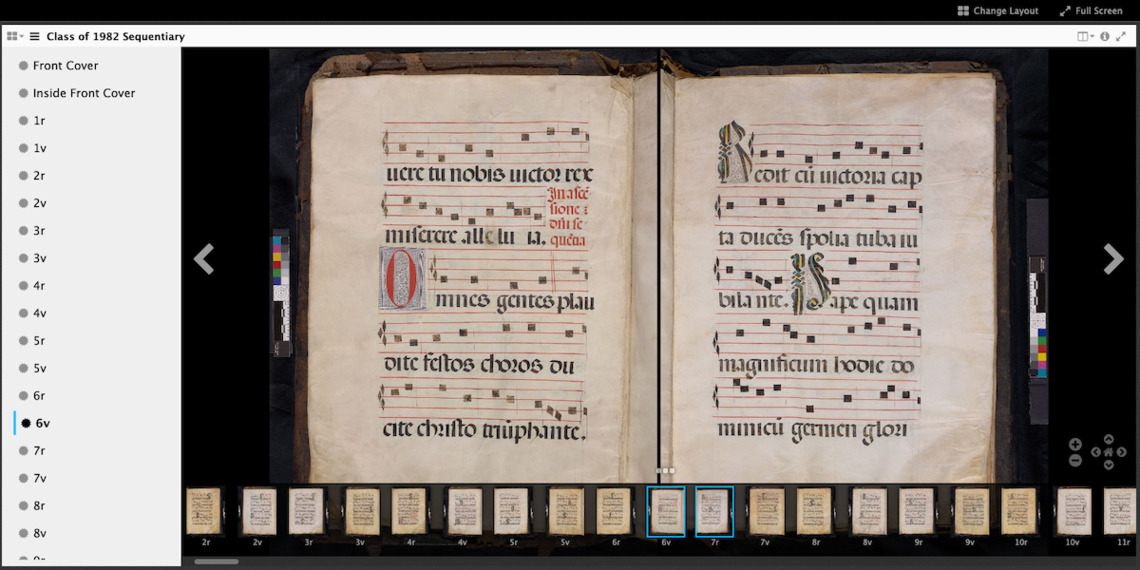 Change Layout
Full Screen
Class of 1982 Sequentiary
Front Cover
Inside Front Cover
1r
1v
2r
2v
3r
3v
4r
4v
5r
5v
6r
6v
7r
7v
8r
8v
9r
uere tu nobis uictor rex
miserere .alle lu ia.
In ascē
sione :
dn̄i se
quētia
Omnes gentes plau
dite festos choros du
cite christo triūphante.
Redit cū uictoria cap
ta ducēs spolia tuba iu
bila nte. Sape quam
magnificum hodie do
minicū germen glori
2r
2v
3r
3v
4r
4v
5r
5v
6r
6v
7r
7v
8r
8v
9r
9v
10r
10v
11r